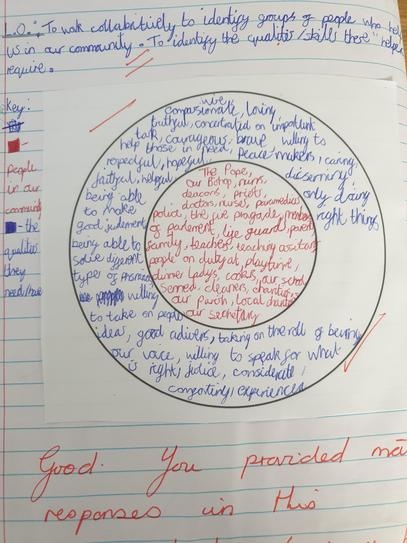 L.O.: To work collabritively to identify groups of people who help
us in our community. To identify the qualities/skills these "helpers
require.
Key:
people
in our
community
- the
qualities
they
need/have
wise,
compasionate, loving,
truthful, concentrated on important
task, courageous, brave willing to
help those in need, peace makers, caring
respectful, hopeful, discerning
faithful, helpful
only doing
right things
being able
to make
good judgement
being able to
solve different
types of
willing
to take on people
ideas, good advisers, taking on the roll of being
our voice, willing to speak for what
is right, justice, considerate,
comforting, experienced
The Pope,
our Bishop, nuns,
deacons, priests,
doctors, nurses, paramedics
police, the fire brigade, members
of parlement, life guard, parents
family, teachers, teaching assistant
people on duty at playtime,
dinner ladys, cooks, our school
cleaners, charities
our parish, local charity
our secretary
Good. You provided
responses in this